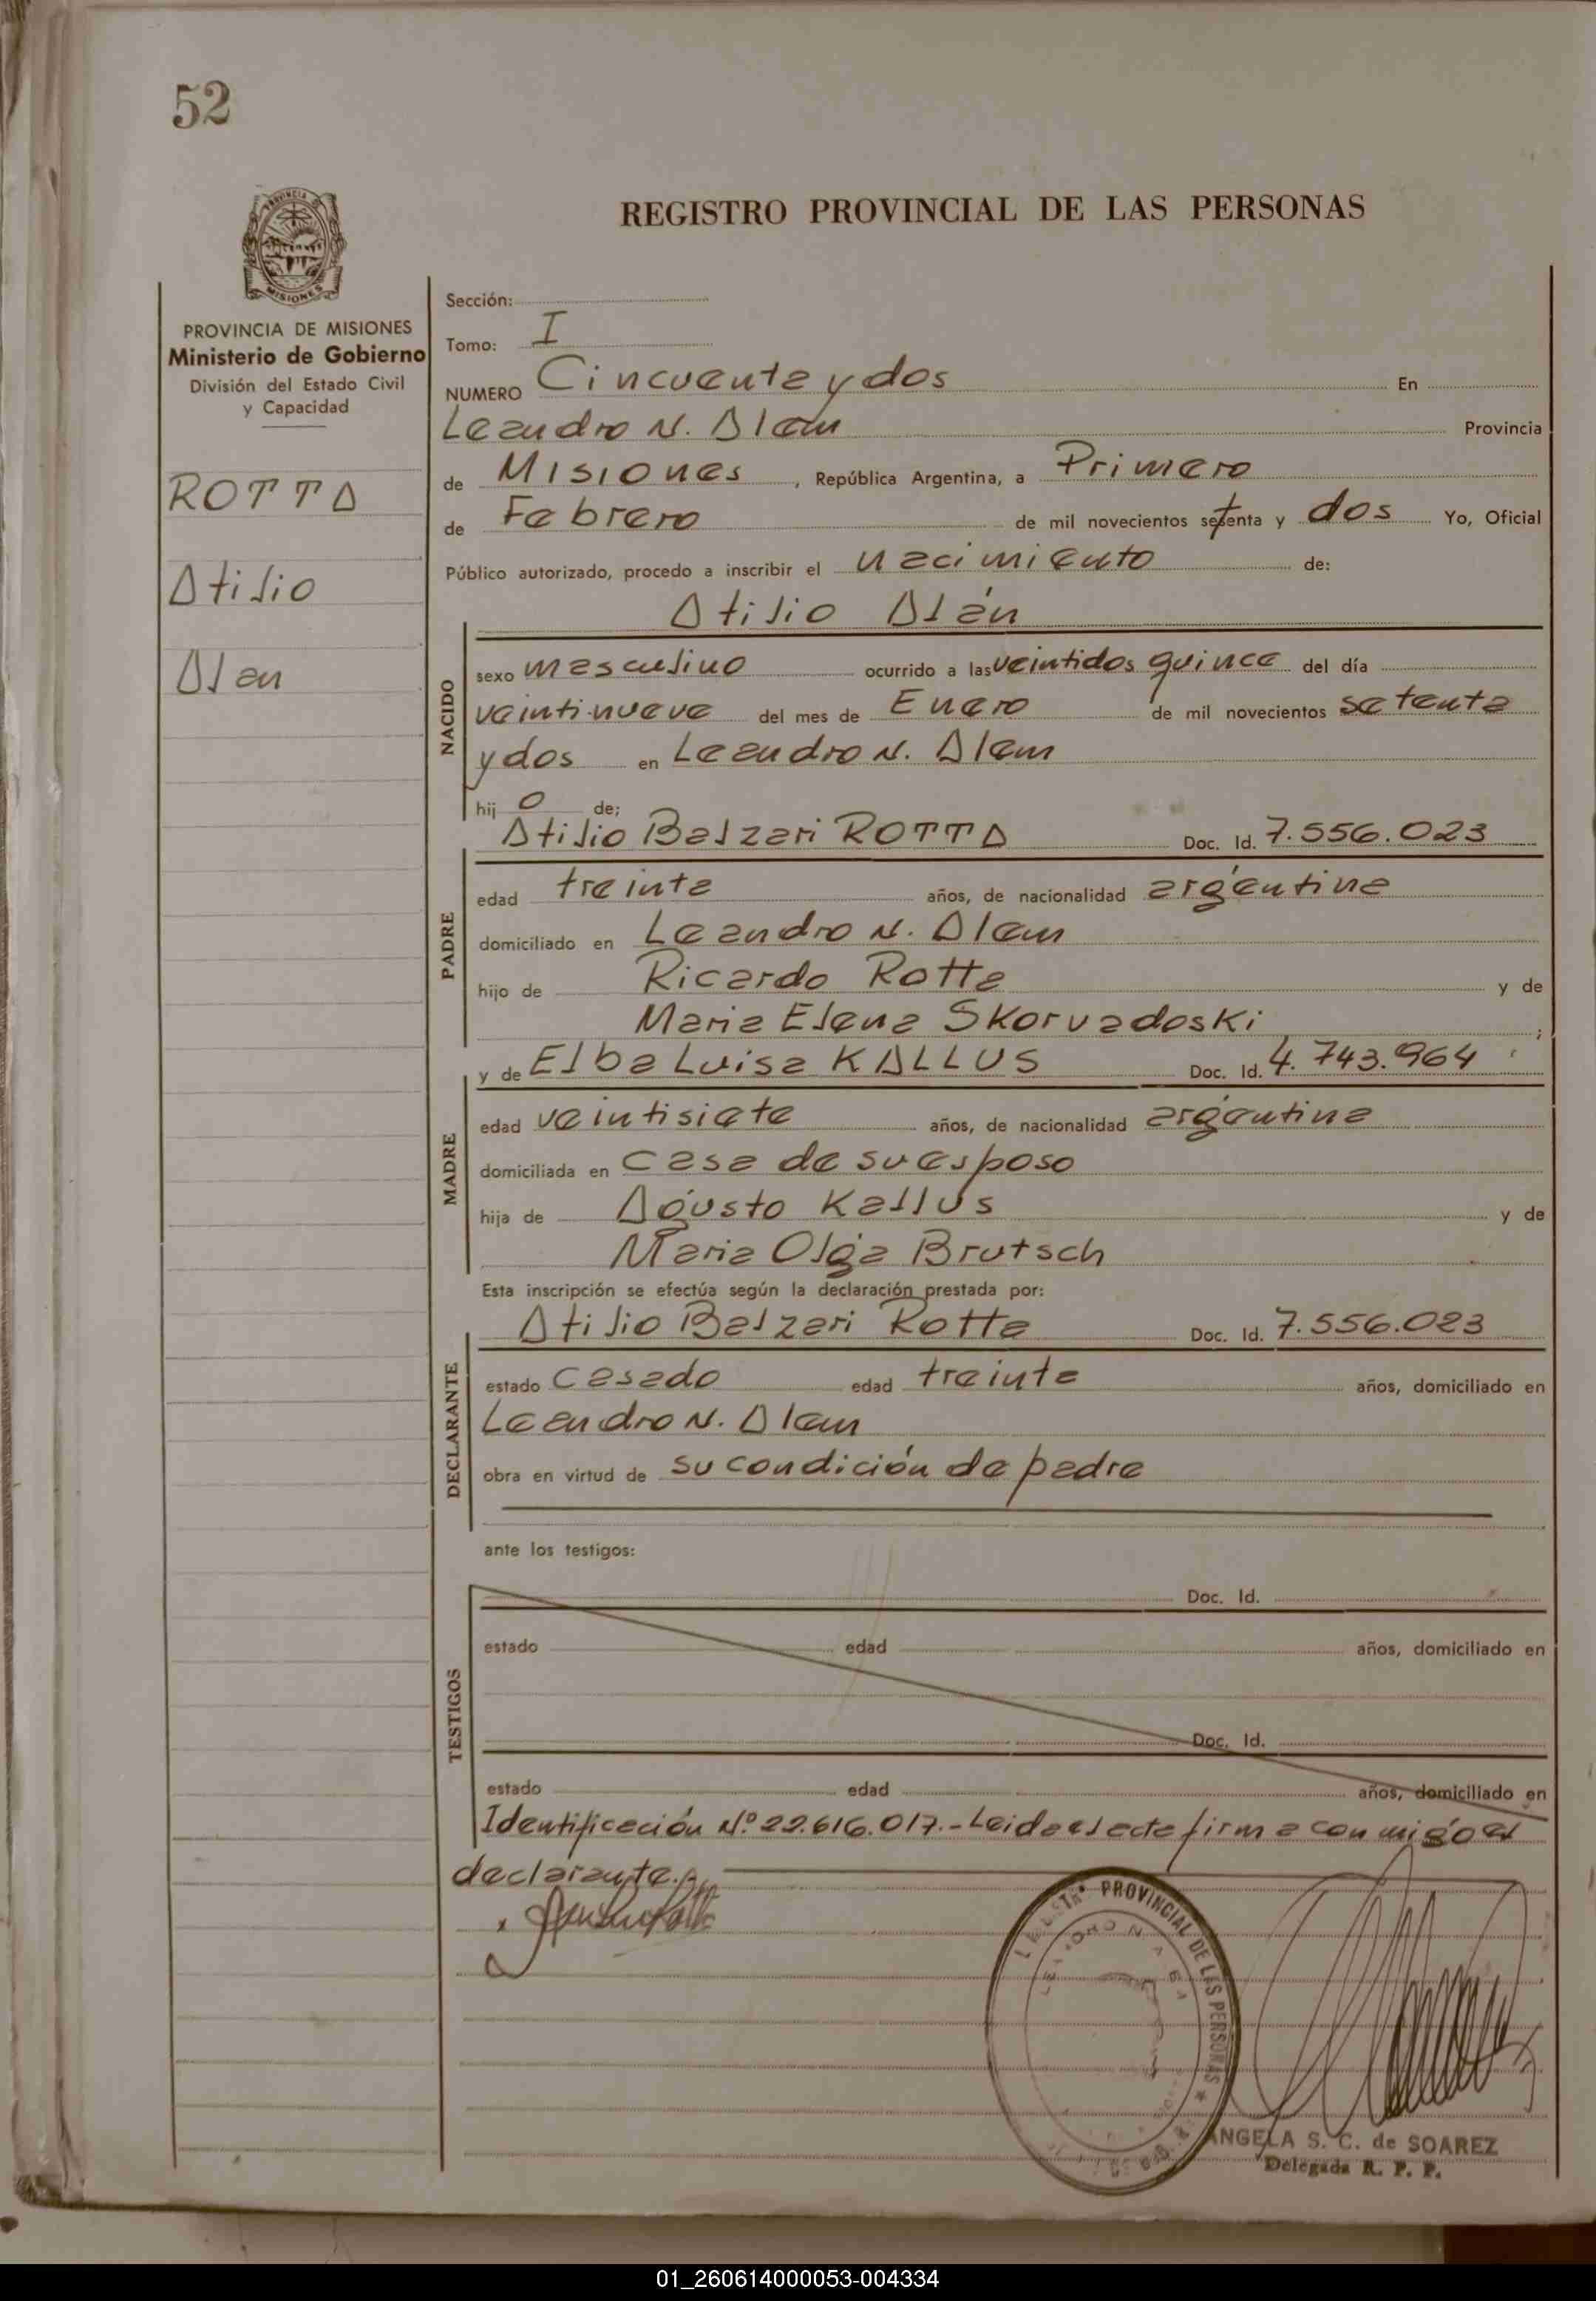 52
REGISTRO PROVINCIAL DE LAS PERSONAS
PROVINCIA DE MISIONES
Ministerio de Gobierno
División del Estado Civil
y Capacidad
ROTTA
Atilio
Alan
Sección:
Tomo: I
NUMERO Cincuenta y dos En
Leandro N. Alem Provincia
de Misiones, República Argentina, a Primero
de Febrero de mil novecientos setenta y dos Yo, Oficial
Público autorizado, procedo a inscribir el nacimiento de:
Atilio Alán
NACIDO
sexo masculino ocurrido a las veintidos quince del día
veintinueve del mes de Enero de mil novecientos setenta
y dos en Leandro N. Alem
hij o de;
Atilio Balzari ROTTA Doc. Id. 7.556.023
PADRE
edad treinta años, de nacionalidad argentina
domiciliado en Leandro N. Alem
hijo de Ricardo Rotta y de
Maria Elena Skorvadoski;
y de Elba Luisa KALLUS Doc. Id. 4.743.964
MADRE
edad veintisiete años, de nacionalidad argentina
domiciliada en casa de su esposo
hija de Agusto Kallus y de
Maria Olga Brutsch
Esta inscripción se efectúa según la declaración prestada por:
Atilio Balzari Rotta Doc. Id. 7.556.023
DECLARANTE
estado casado edad treinta años, domiciliado en
Leandro N. Alem
obra en virtud de su condición de padre
ante los testigos:
TESTIGOS
Doc. Id.
estado edad años, domiciliado en
Doc. Id.
estado edad años, domiciliado en
Identificación Nº 22.616.017.- Leida el acta firma con migo el
declarante.
PROVINCIAL DE LAS PERSONAS
ANGELA S. C. de SOAREZ
Delegada R. P. P.
01_260614000053-004334